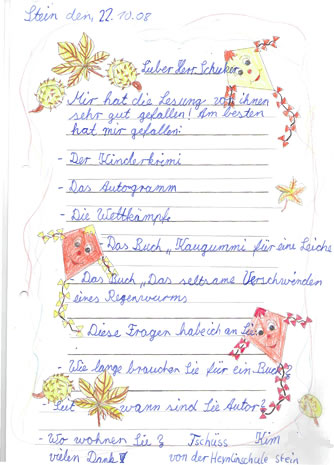 Stein den, 22.10.08
Lieber Herr Schuker
Mir hat die Lesung von ihnen
sehr gut gefallen! Am besten
hat mir gefallen:
- Der Kinderkrimi
- Das Autogramm
- Die Wettkämpfe
- Das Buch „Kaugummi für eine Leiche
- Das Buch „Das seltsame Verschwinden
eines Regenwurms
Diese Fragen habe ich an Sie:
- Wie lange brauchen Sie für ein Buch?
- Seit wann sind Sie Autor?
- Wo wohnen Sie? Tschüss Kim
vielen Dank! von der Heynlinschule Stein